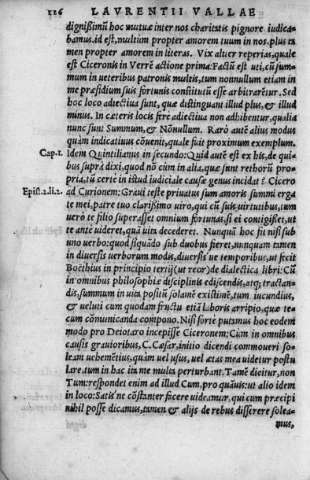 126 LAVRENTII VALLAE
dignissimũ hoc mutuæ inter nos charitatis pignore iudica-
bamus. id est, multim propter amorem tuum in nos, plus ta
men propter amorem in literas. Vix aliter reperias, quale
est Ciceronis in Verrẽ actione prima: Factũ est uti, cũ sum-
mum in ueteribus patronis multis, tum nonnullum etiam in
me præsidium suis fortunis constitutũ esse arbitraretur. Sed
hoc loco adiectiua sunt, quæ distinguant illud plus, & illud
minus. In cæteris locis ferè adiectiua non adhibentur, qualia
nunc sunt Summum, & Nõnullum. Rarò autẽ alius modus
quàm indicatiuus cõuenit, quale fuit proximum exemplum.
Cap.1. Idem Quintilianus in secundo: Quid autẽ est ex his, de qui-
bus suprà dixi, quod nõ cùm in alia, quæ sunt rhetorũ pro-
pria, tũ certè in istud iudiciale causæ genus incidat? Cicero
Epist.2.li.2. ad Curionem: Graui teste priuatus sum amoris summi erga
te mei, patre tuo clarissimo uiro, qui cũ suis uirtutibus, tum
uerò te filio superasset omnium fortunas, si ei contigisset, ut
te antè uideret, quã uita decederet. Nunquã hoc fit nisi sub
uno uerbo: quod siquãdo sub duobus fieret, nunquam tamen
in diuersis uerborum modis, diuersis'ue temporibus, ut fecit
Boethius in principio tertij (ut reor) de dialectica libri: Cũ
in omnibus philosophiæ disciplinis ediscendis, atq; tractan-
dis, summum in uita positũ solamẽ existimẽ, tum iucundius,
& ueluti cum quodam fructu etiã laboris arripio, quæ te-
cum cõmunicanda compono. Nisi fortè putamus hoc eodem
modo pro Deiotaro incepisse Ciceronem: Cùm in omnibus
causis grauioribus, C. Cæsar, initio dicendi commoueri so-
leam uehemẽtius, quàm uel usus, uel ætas mea uidetur postu
lare, tum in hac ita me multa perturbant. Tamẽ dicitur, non
Tum: respondet enim ad illud Cum, pro quãuis: ut alio idem
in loco: Satis ne cõstanter facere uideamur, qui cum præcipi
nihil posse dicamus, tamen & alijs de rebus disserere solea-
mus,